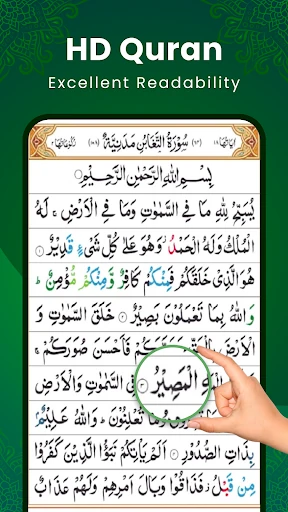 HD Quran
Excellent Readability
سُوْرَةُ التَّغَابُنِ مَدَنِيَّةٌ
بِسْمِ اللّٰهِ الرَّحْمٰنِ الرَّحِيْمِ
يُسَبِّحُ لِلّٰهِ مَا فِي السَّمٰوٰتِ وَمَا فِي الْاَرْضِ ۚ لَهُ
الْمُلْكُ وَلَهُ الْحَمْدُ وَهُوَ عَلٰى كُلِّ شَيْءٍ قَدِيْرٌ
هُوَ الَّذِيْ خَلَقَكُمْ فَمِنْكُمْ كَافِرٌ وَّمِنْكُمْ مُّؤْمِنٌ ۭ
وَاللّٰهُ بِمَا تَعْمَلُوْنَ بَصِيْرٌ خَلَقَ السَّمٰوٰتِ
وَالْاَرْضَ وَصَوَّرَكُمْ فَاَحْسَنَ صُوَرَكُمْ
الْمَصِيْرُ فِي السَّمٰوٰتِ وَالْاَرْضِ
وَمَا تُعْلِنُوْنَ ۭ وَاللّٰهُ عَلِيْمٌۢ
بِذَاتِ الصُّدُوْرِ اَلَمْ يَاْتِكُمْ نَبَؤُا الَّذِيْنَ كَفَرُوْا
مِنْ قَبْلُ ۡ فَذَاقُوْا وَبَالَ اَمْرِهِمْ وَلَهُمْ عَذَابٌ